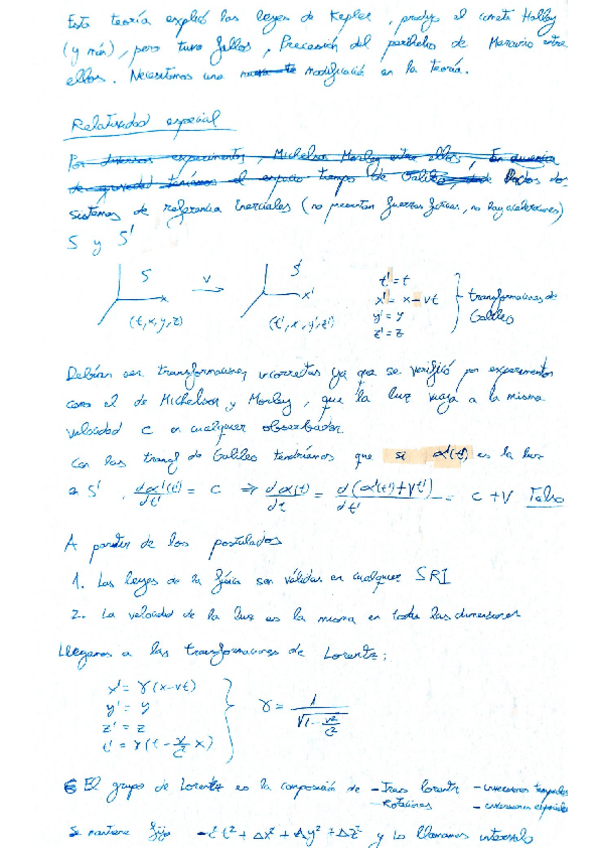 Esta teoría explicó las leyes de Kepler, predijo el cometa Halley
(y más), pero tuvo fallos, Precesión del perihelio de Mercurio entre
ellos. Necesitamos una modificació en la teoría.
Relatividad especial
Por diversos experimentos, Michelson Morley entre ellos, En ausencia
de gravedad teníamos el espacio tiempo de Galileo, dos
sistemas de referencia inerciales (no presentan fuerzas ficticias, no hay aceleraciones)
S y S'
S v S'
x x'
(t,x,y,z) (t',x',y',z')
t' = t
x' = x - vt
y' = y
z' = z
transformaciones de
Galileo
Debían ser transformaciones incorrectas ya que se verificó por experimentos
como el de Michelson y Morley, que la luz viaja a la misma
velocidad c en cualquier observador.
Con las transf de Galileo tendríamos que si α'(t') es la luz
en S', dα'(t')/dt' = c ⇒ dα(t)/dt = d(α'(t')+vt')/dt' = c + v Falso
A partir de los postulados
1. Las leyes de la física son válidas en cualquier SRI
2. La velocidad de la luz es la misma en todas las dimensiones
Llegamos a las transformaciones de Lorentz:
x' = γ(x-vt)
y' = y
z' = z
t' = γ(t - v/c² x)
γ = 1/√(1 - v²/c²)
El grupo de Lorentz es la composición de - Trans Lorentz - inversiones temporales
- Rotaciones - inversiones espaciales
Se mantiene fijo -c²t² + Δx² + Δy² + Δz² y lo llamamos intervalo